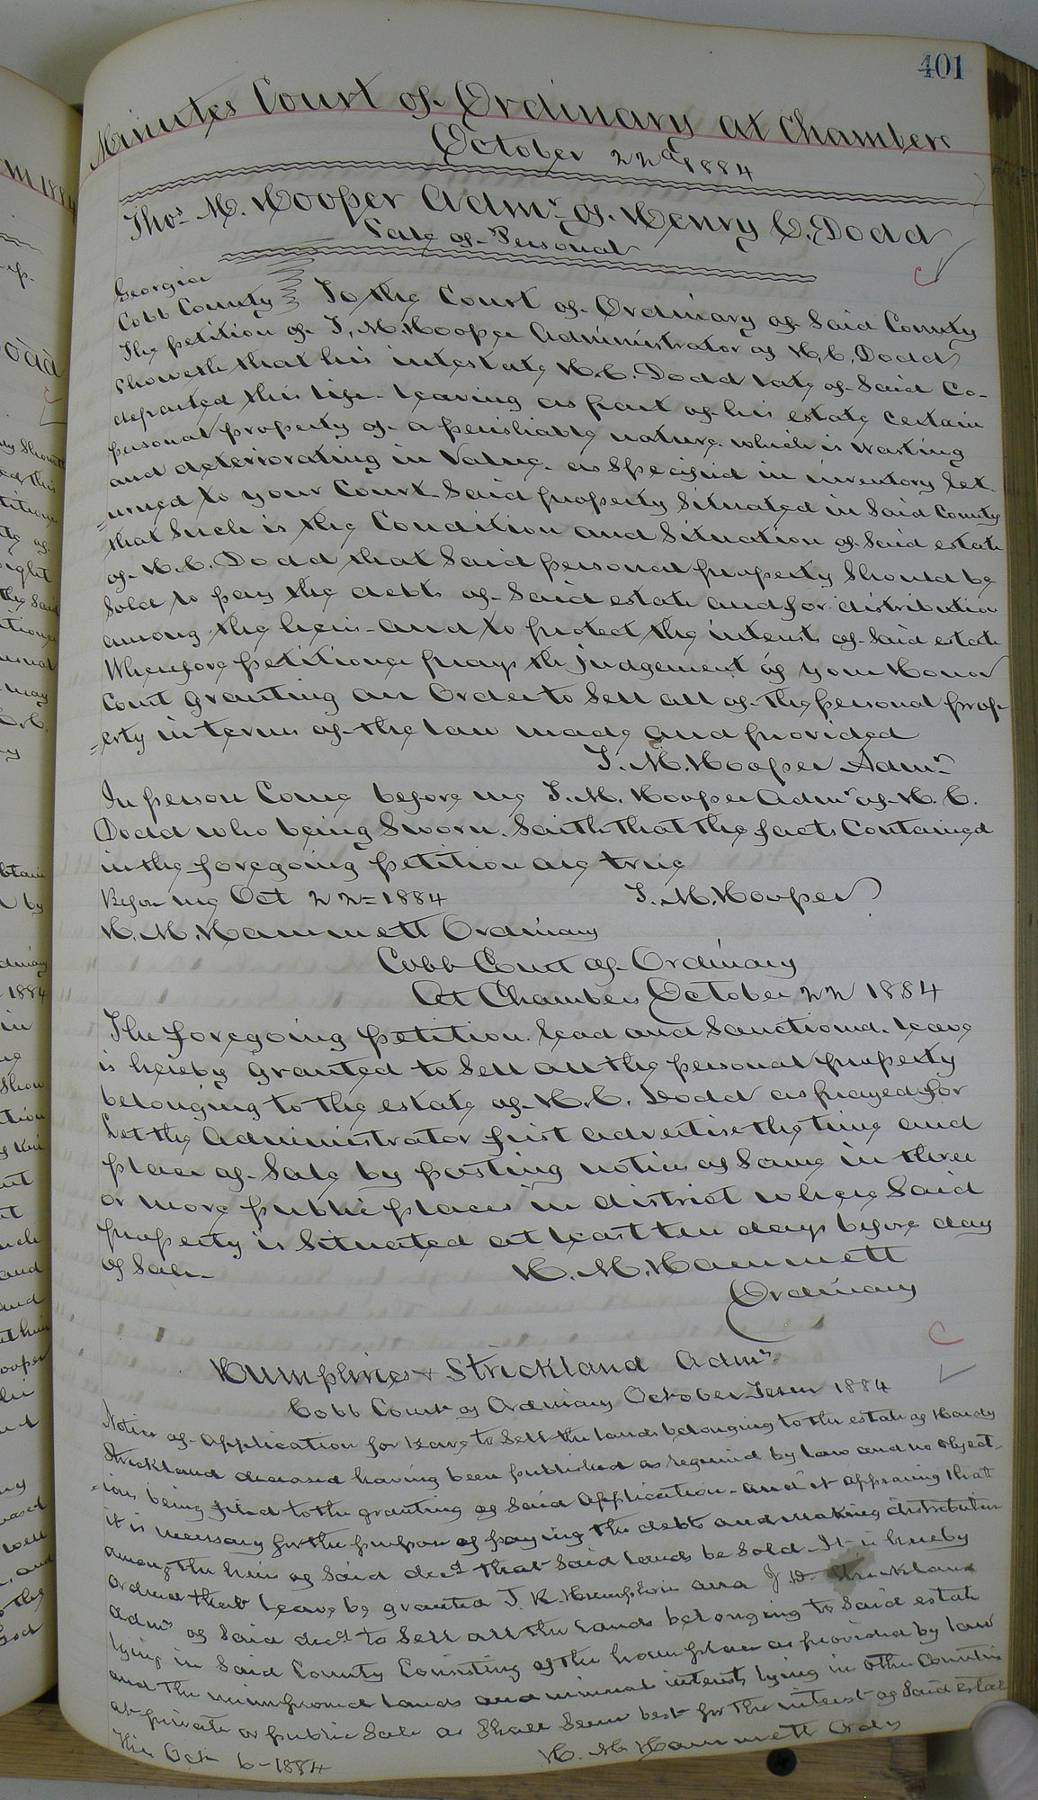 401
Minutes Court of Ordinary at Chambers
October 22d 1884
Thos. M. Hooper Admr. of Henry C. Dodd
Sale of Personal
Georgia
Cobb County To the Court of Ordinary of Said County
The petition of T. M. Hooper Administrator of H. C. Dodd
Showeth that his intestate H. C. Dodd late of Said Co-
departed this life leaving as part of his estate certain
personal property of a perishable nature which is wasting
and deteriorating in Value as Specified in inventory Ret
=urned to your Court Said property Situated in Said County
that Such is the Condition and Situation of Said estate
of H. C. Dodd that Said personal property Should be
Sold to pay the debts of Said estate and for distribution
among the heirs and to protect the interests of Said estate
Wherefore petitioner prays the judgement of your Honor
Court granting an Order to Sell all of the personal prop-
=erty in terms of the law made and provided
T. M. Hooper Admr.
In person Come before me T. M. Hooper Admr of H. C.
Dodd who being Sworn Saith that the facts Contained
in the foregoing petition are true
Before me Oct 22= 1884 T. M. Hooper
H. M. Hammett Ordinary
Cobb Court of Ordinary
At Chambers October 22 1884
The foregoing petition read and Sanctioned. leave
is hereby granted to Sell all the personal property
belonging to the estate of H. C. Dodd as prayed for
Let the Administrator first advertise the time and
place of Sale by posting notices of Same in three
or more public places in district where Said
property is Situated at least ten days before day
of Sale H. M. Hammett
Ordinary
Humphries & Strickland Admrs.
Cobb Court of Ordinary October Term 1884
Notice of Application for Leave to Sell the lands belonging to the estate of Hardy
Strickland deceased having been published as required by law and no object-
=ions being filed to the granting of Said Application and it appearing that
it is necessary for the purpose of paying the debts and making distribution
among the heirs of Said decd that Said lands be Sold It is hereby
ordered that leave be granted J. K. Humphries and J Strickland
Admrs of Said decd to Sell all the lands belonging to Said estate
lying in Said County Consisting of the home place as provided by law
and the unimproved lands and mineral interests lying in other Counties
at private or public Sale as Shall Seem best for the interest of Said estate
This Oct 6-1884 H. M. Hammett Ordy